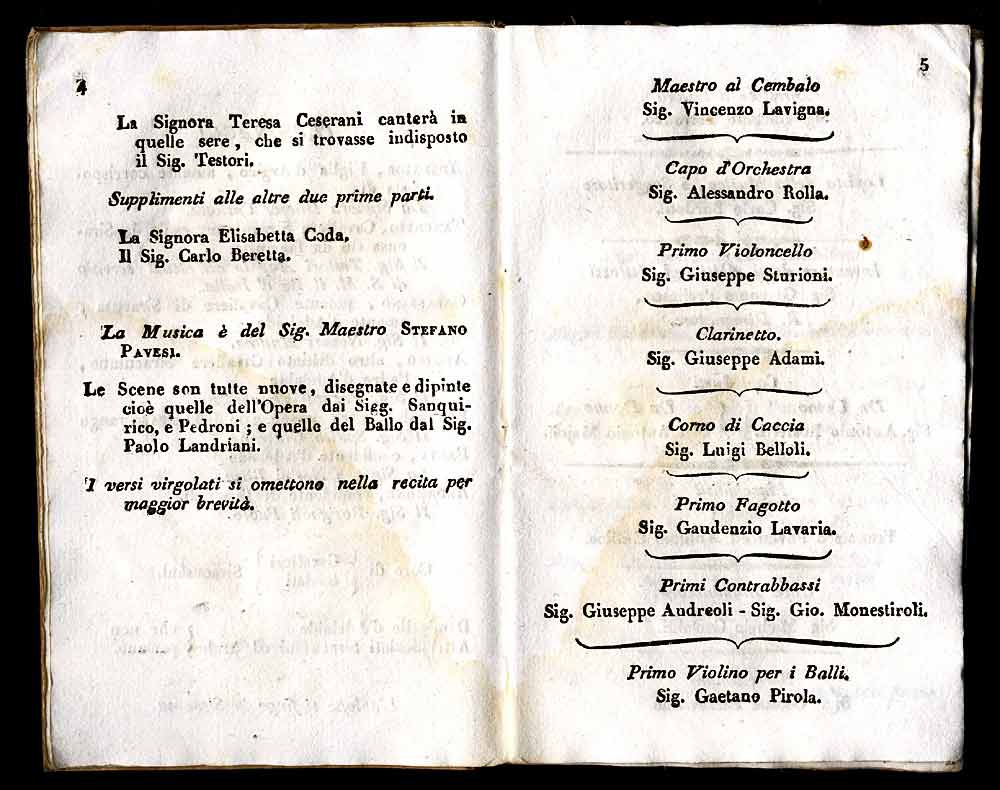 4
La Signora Teresa Ceserani canterà in
quelle sere, che si trovasse indisposto
il Sig. Testori.
Supplimenti alle altre due prime parti.
La Signora Elisabetta Coda.
Il Sig. Carlo Beretta.
La Musica è del Sig. Maestro STEFANO
PAVESI.
Le Scene son tutte nuove, disegnate e dipinte
cioè quelle dell'Opera dai Sigg. Sanqui-
rico, e Pedroni; e quelle del Ballo dal Sig.
Paolo Landriani.
I versi virgolati si omettono nella recita per
maggior brevità.
5
Maestro al Cembalo
Sig. Vincenzo Lavigna.
Capo d'Orchestra
Sig. Alessandro Rolla.
Primo Violoncello
Sig. Giuseppe Sturioni.
Clarinetto.
Sig. Giuseppe Adami.
Corno di Caccia
Sig. Luigi Belloli.
Primo Fagotto
Sig. Gaudenzio Lavaria.
Primi Contrabbassi
Sig. Giuseppe Andreoli - Sig. Gio. Monestiroli.
Primo Violino per i Balli.
Sig. Gaetano Pirola.